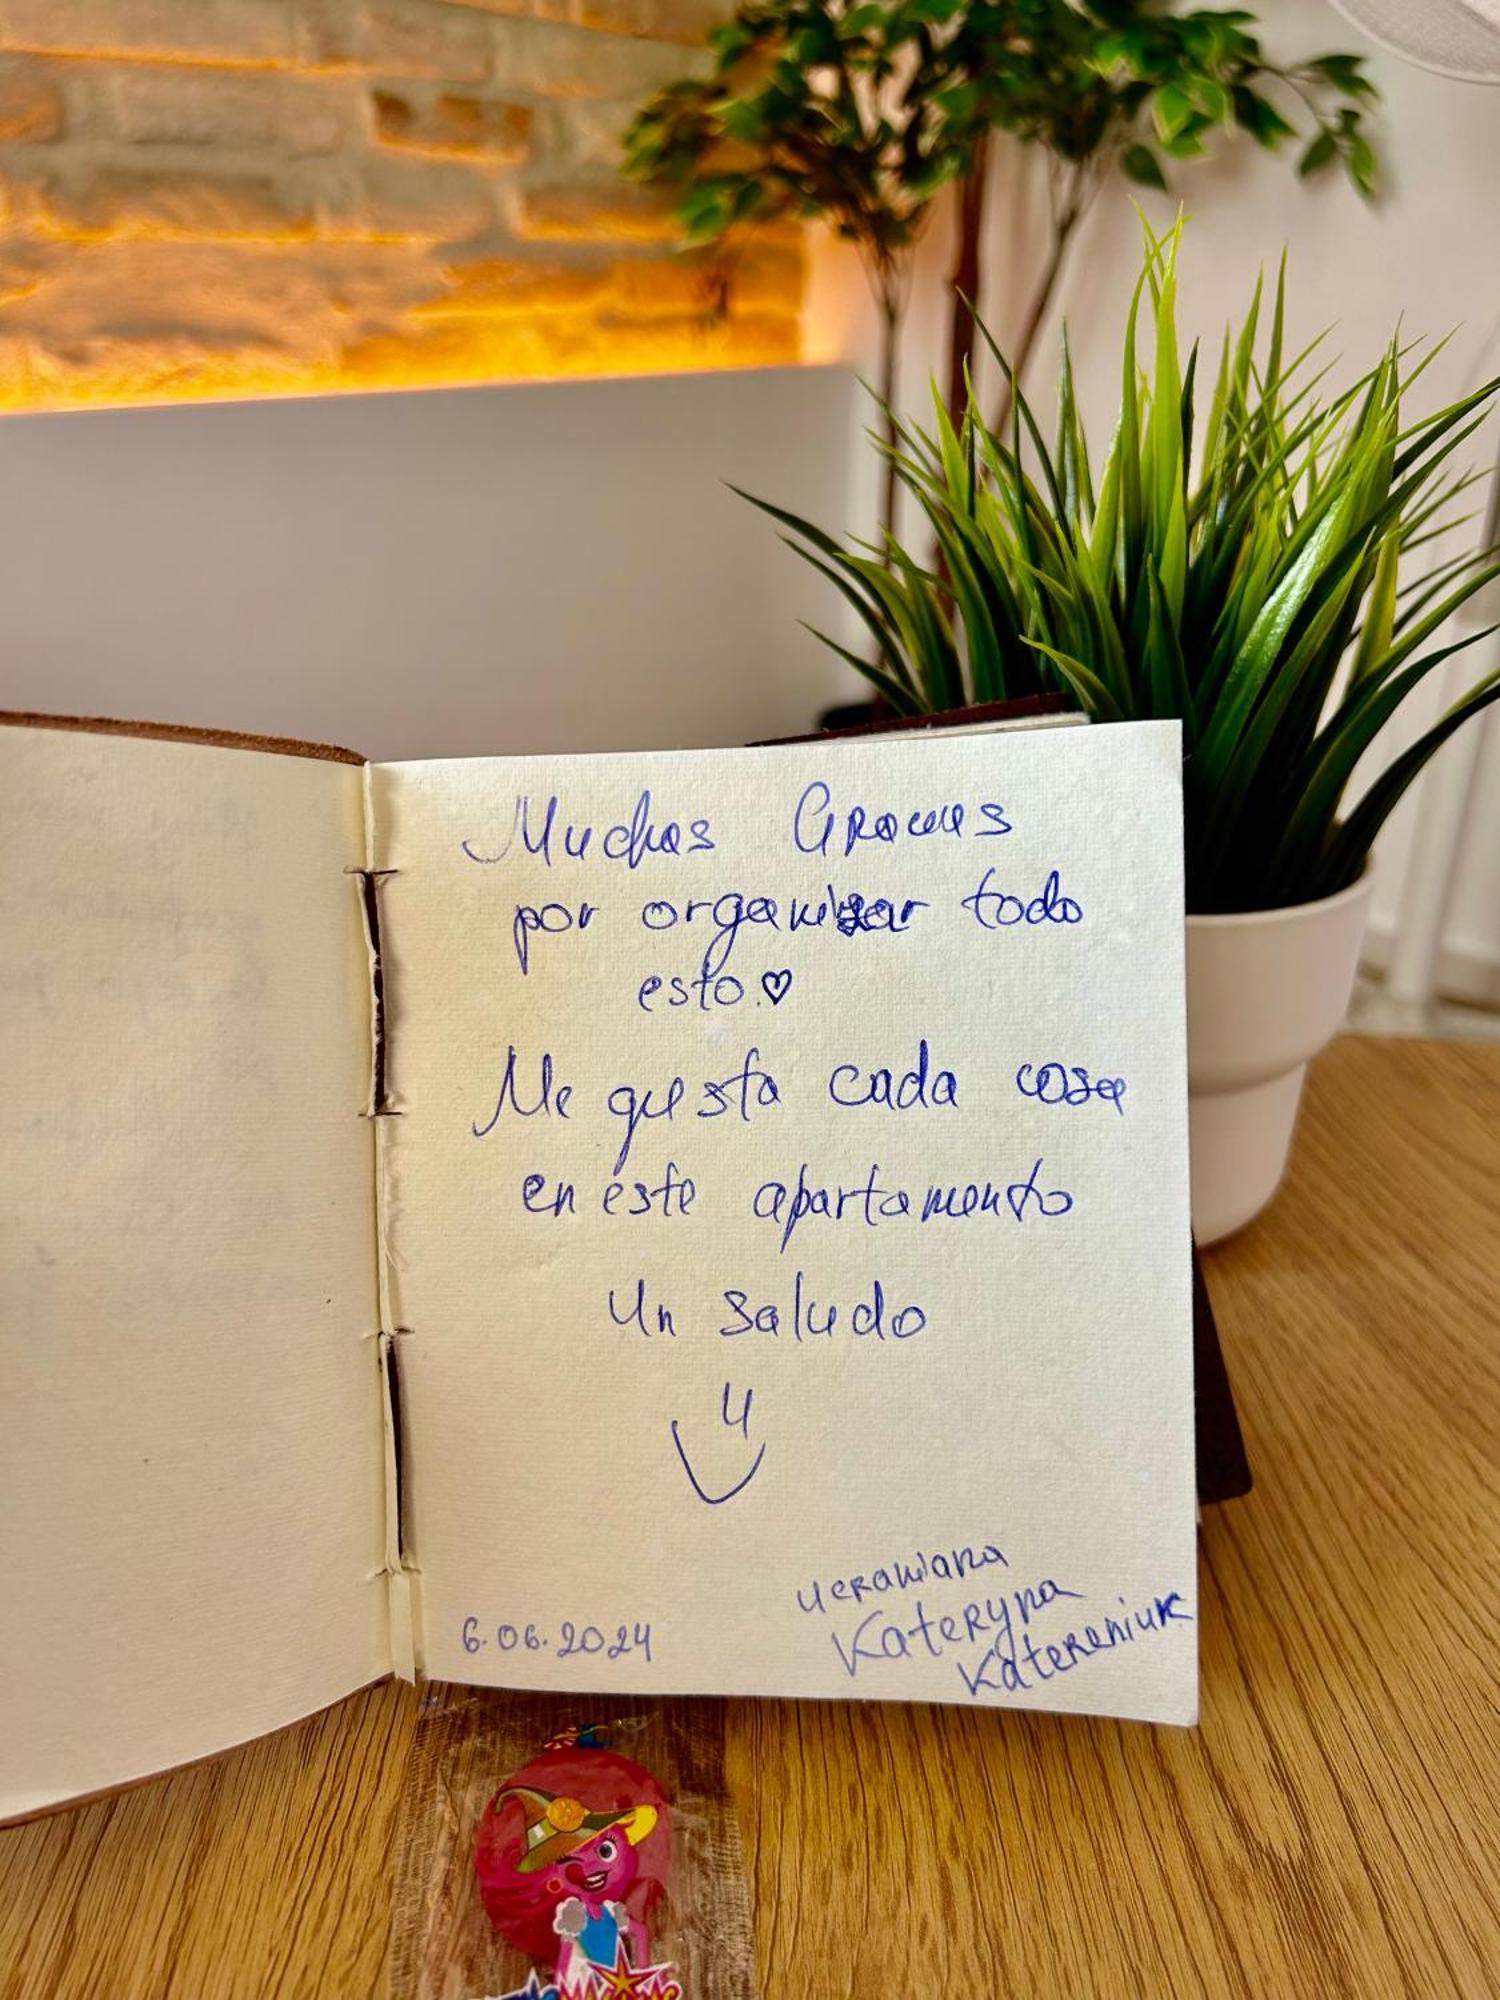 Muchas Gracias
por organizar todo
esto.♡
Me gusta cada cosa
en este apartamento
Un saludo
ucraniana
Kateryna
Katereniuk
6.06.2024